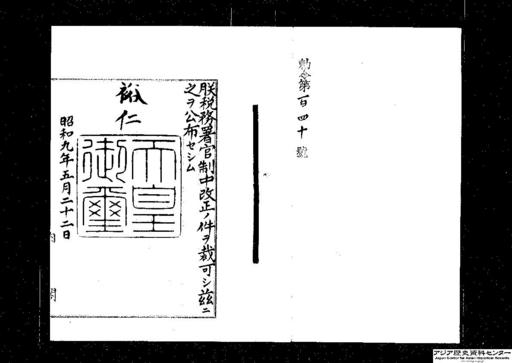 勅令第百四十號
朕税務署官制中改正ノ件ヲ裁可シ茲ニ
之ヲ公布セシム
裕仁
天皇
御璽
昭和九年五月二十二日
内閣
アジア歴史資料センター
Japan Center for Asian Historical Records